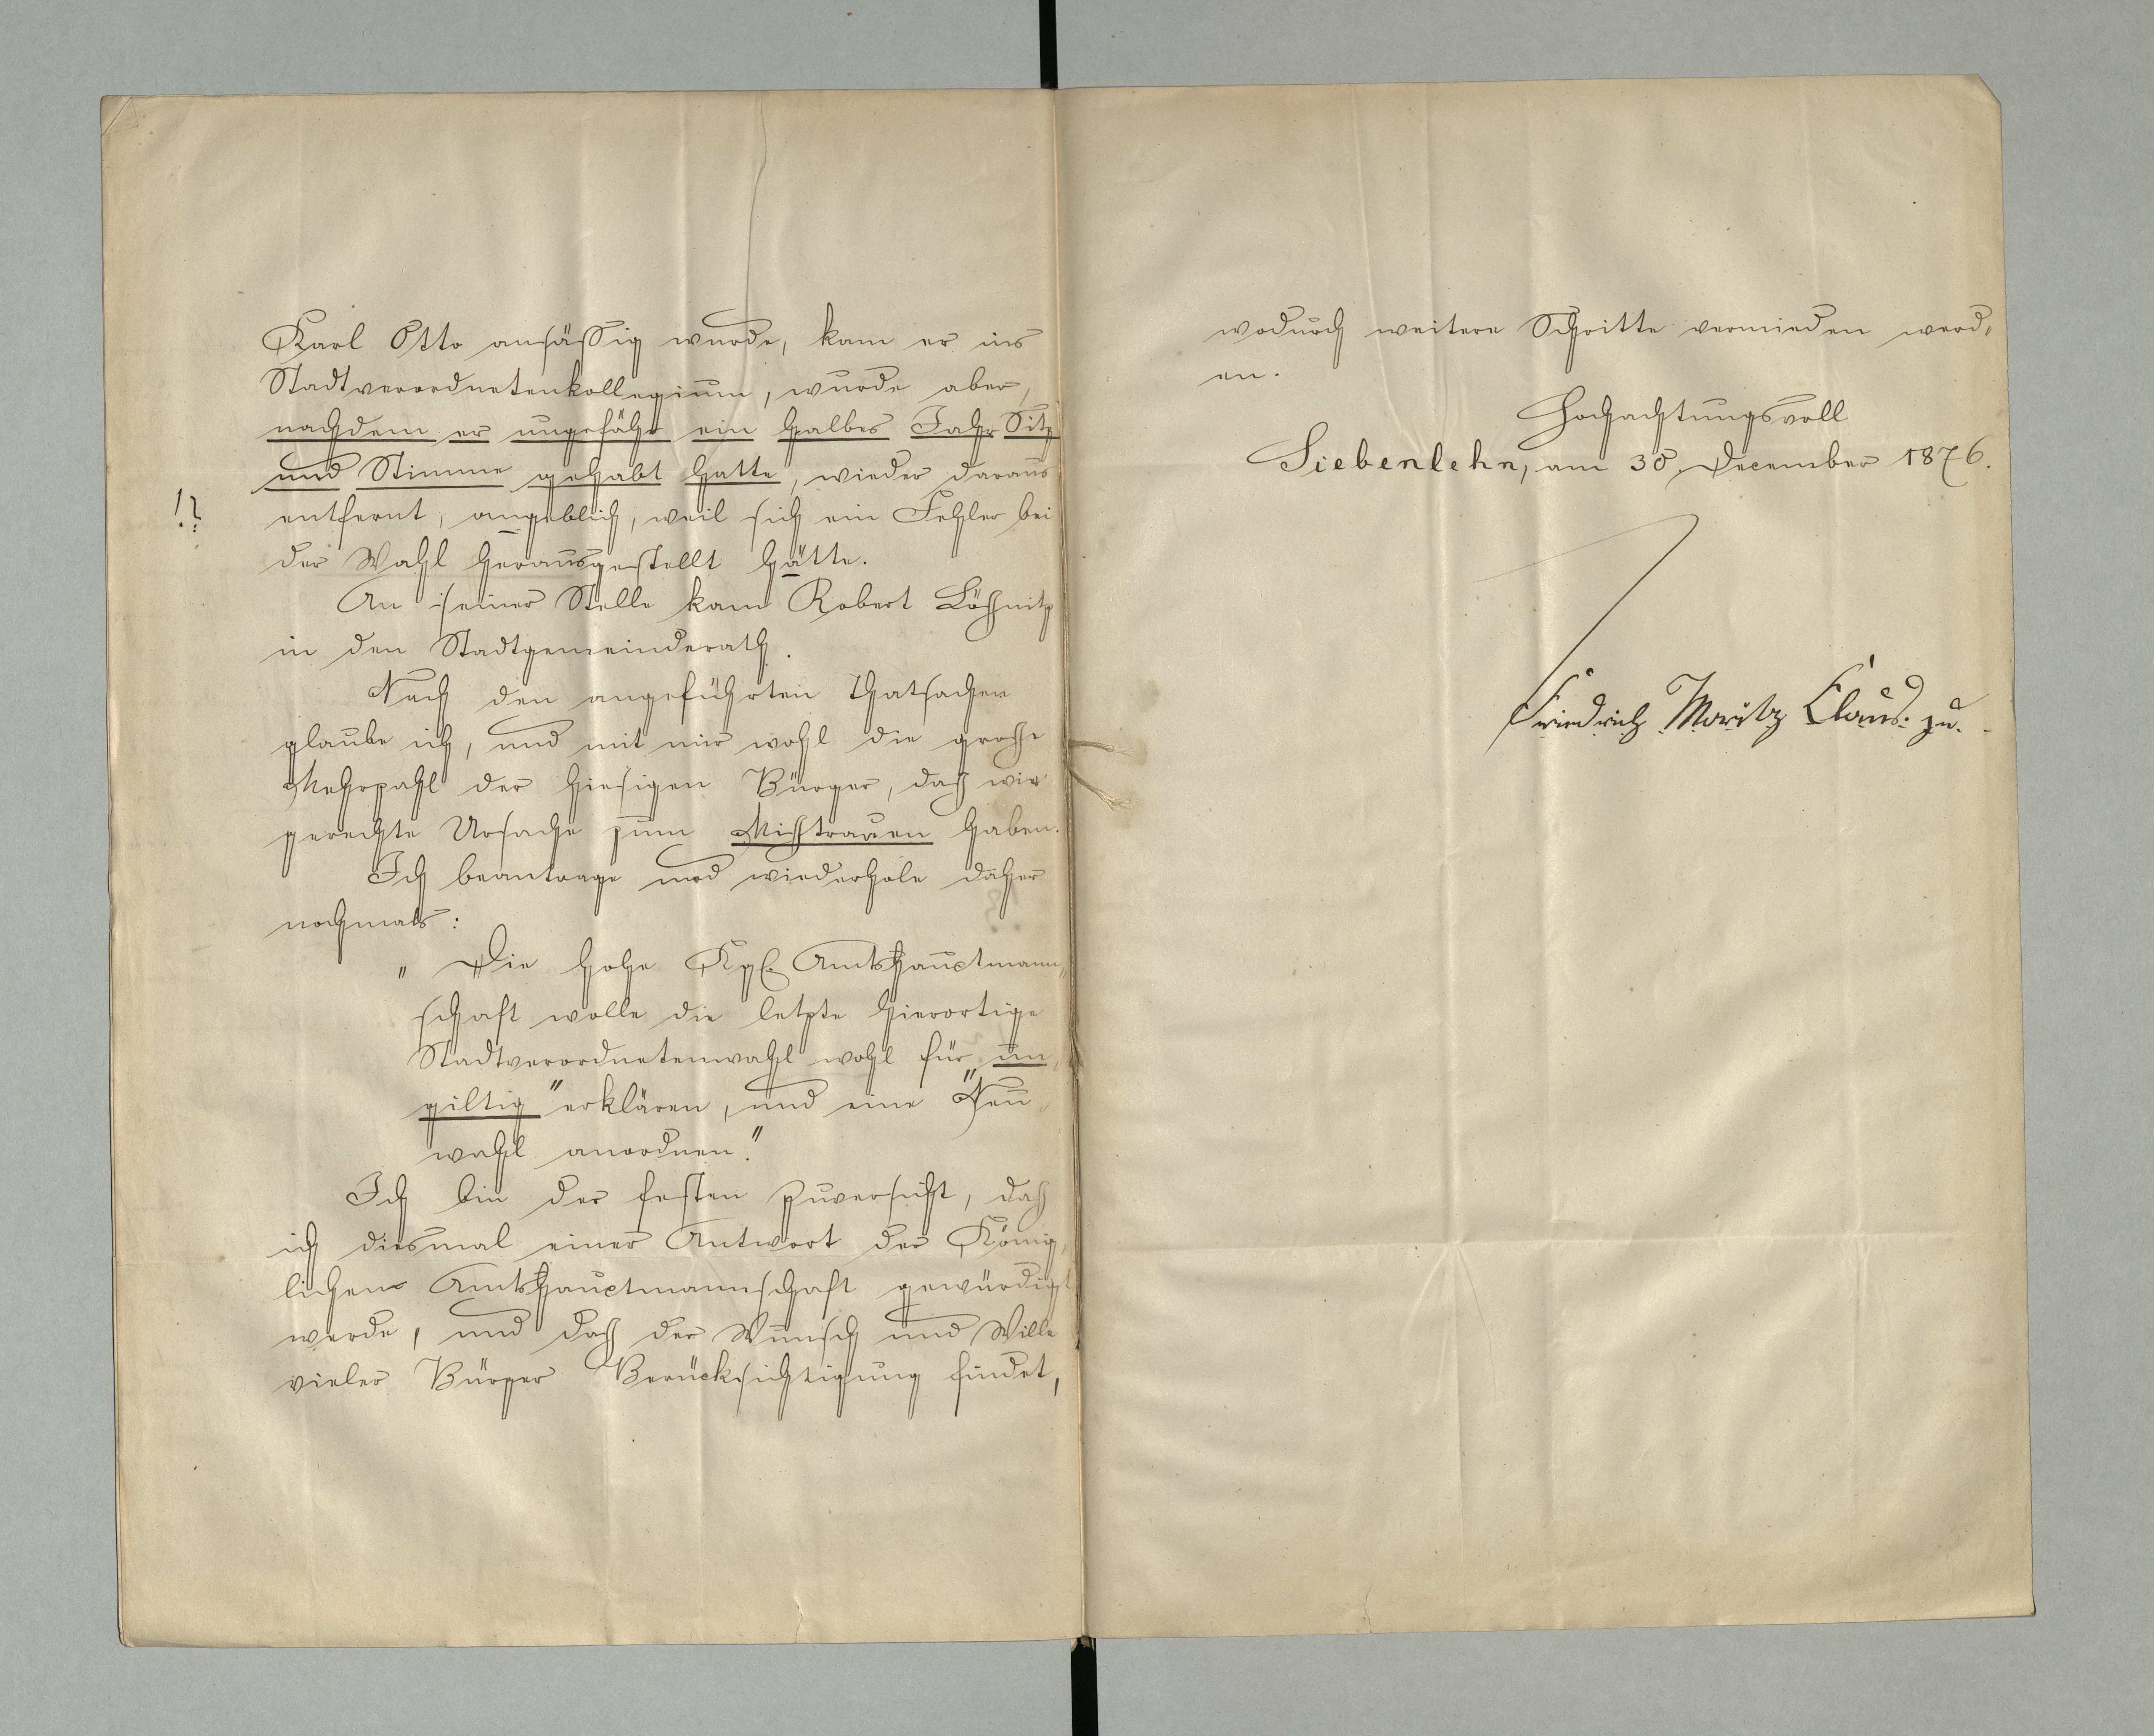 Karl Otto ansässig wurde, kam er ins
Stadtverordnetenkollegium, wurde aber,
nachdem er ungefähr ein halbes Jahr Sitz
und Stimme gehabt hatte, wieder daraus
!?
entfernt, angeblich, weil sich ein Fehler bei
der Wahl herausgestellt hätte.
An seiner Stelle kam Robert Lößnitz
in den Stadtgemeinderath.
Nach den angeführten Thatsachen
glaube ich, und mit mir wohl die große
Mehrzahl der hiesigen Bürger, daß wir
gerechte Ursache zum Mißtrauen haben.
Ich beantrage und wiederhole daher
nochmals:
"Die hohe Kgl. Amtshauptmann-
schaft wolle die letzte hierortige
Stadtverordnetenwahl wohl für "un-
giltig" erklären, und eine "Neu-
wahl anordnen."
Ich bin der festen Zuversicht, daß
ich diesmal einer Antwort der König-
lichen Amtshauptmannschaft gewürdigt
werde, und daß der Wunsch und Wille
vieler Bürger Berücksichtigung findet,
wodurch weitere Schritte vermieden werd-
en.
Hochachtungsvoll
Siebenlehn, am 30. December 1876.
Friedrich Moritz Claus.